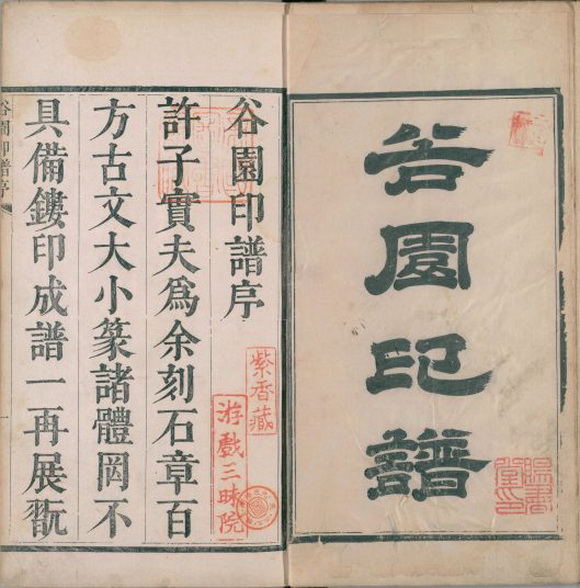 谷園印譜
谷園印譜序
許子實夫爲余刻石章百
方古文大小篆諸體罔不
具備鏤印成譜一再展翫
紫香藏
游戲三昧院
谷園印譜序